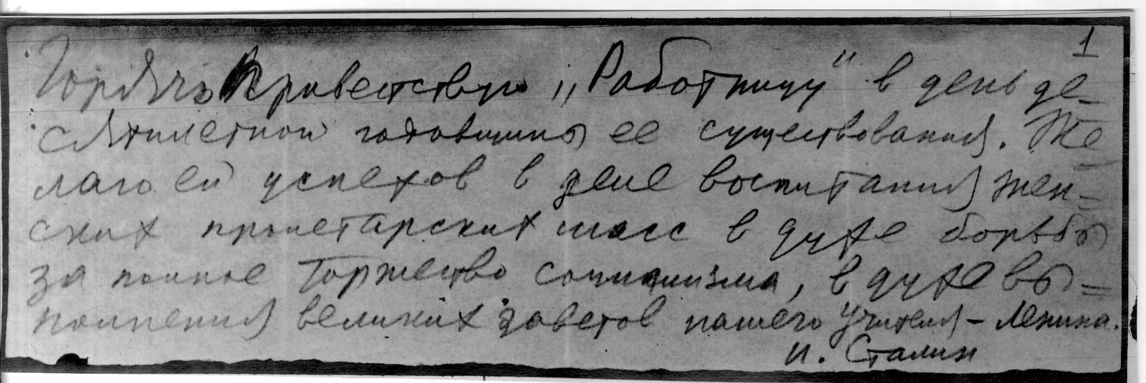 1
Горячо приветствую „Работницу" в день де-
сятилетной годовщины ее существования. Же-
лаю ей успехов в деле воспитания жен-
ских пролетарских масс в духе борьбы
за полное торжество социализма, в духе вы-
полнения великих заветов нашего учителя – Ленина.
И. Сталин